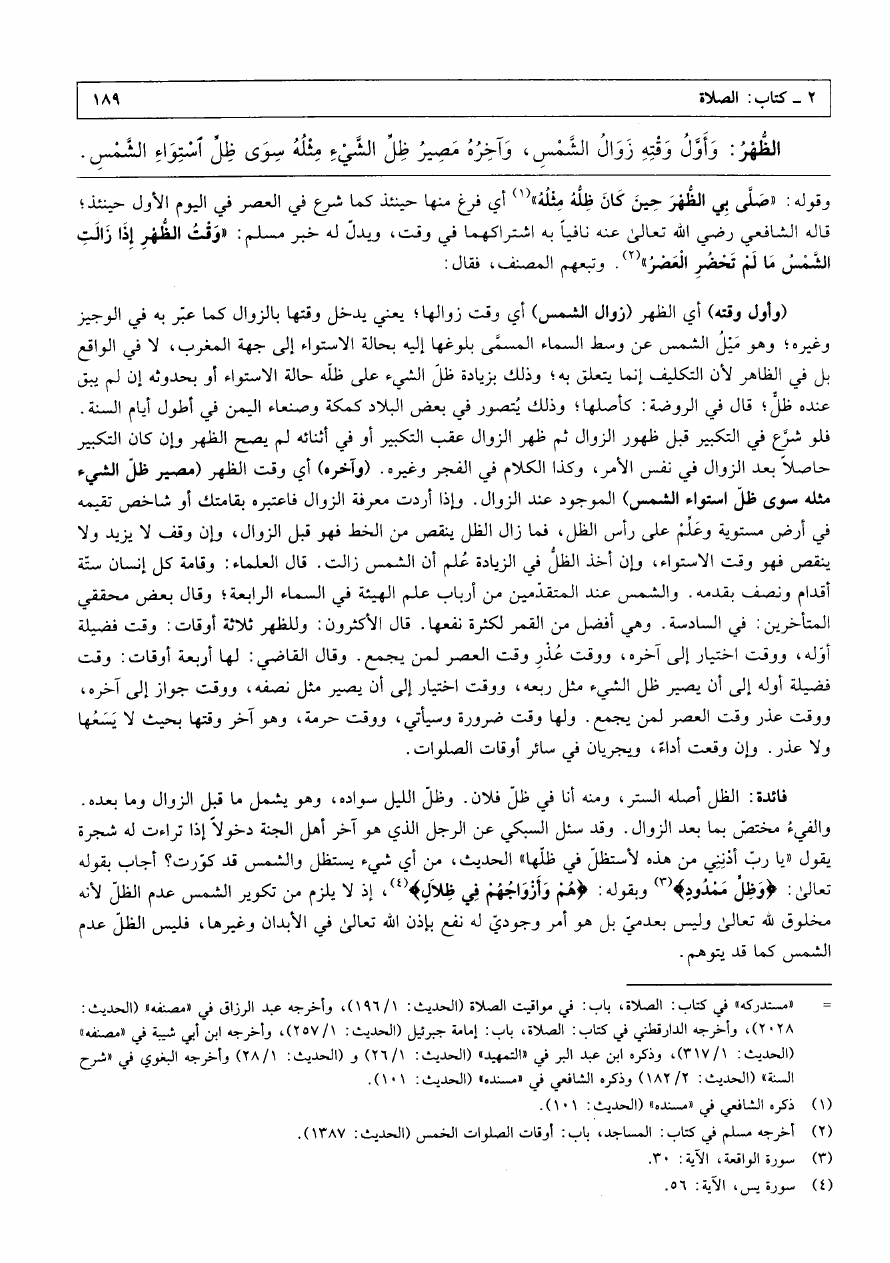 ٢ ـ كتاب: الصلاة ١٨٩
الظُّهْرُ: وَأَوَّلُ وَقْتِهِ زَوَالُ الشَّمْسِ، وَآخِرُهُ مَصِيرُ ظِلِّ الشَّيْءِ مِثْلُهُ سِوَى ظِلِّ ٱسْتِوَاءِ الشَّمْسِ.
وقوله: «صَلَّى بِي الظُّهْرَ حِينَ كَانَ ظِلُّهُ مِثْلُهُ»(١) أي فرغ منها حينئذ كما شرع في العصر في اليوم الأول حينئذ؛
قاله الشافعي رضي الله تعالىٰ عنه نافياً به اشتراكهما في وقت، ويدلّ له خبر مسلم: «وَقْتُ الظُّهْرِ إِذَا زَالَتِ
الشَّمْسُ مَا لَمْ تَحْضُرِ الْعَصْرُ»(٢). وتبعهم المصنف، فقال:
(وأول وقته) أي الظهر (زوال الشمس) أي وقت زوالها؛ يعني يدخل وقتها بالزوال كما عبّر به في الوجيز
وغيره؛ وهو مَيْلُ الشمس عن وسط السماء المسمَّى بلوغها إليه بحالة الاستواء إلى جهة المغرب، لا في الواقع
بل في الظاهر لأن التكليف إنما يتعلق به؛ وذلك بزيادة ظلّ الشيء على ظلّه حالة الاستواء أو بحدوثه إن لم يبق
عنده ظلٌّ؛ قال في الروضة: كأصلها؛ وذلك يُتصور في بعض البلاد كمكة وصنعاء اليمن في أطول أيام السنة.
فلو شرَع في التكبير قبل ظهور الزوال ثم ظهر الزوال عقب التكبير أو في أثنائه لم يصح الظهر وإن كان التكبير
حاصلاً بعد الزوال في نفس الأمر، وكذا الكلام في الفجر وغيره. (وآخره) أي وقت الظهر (مصير ظلّ الشيء
مثله سوى ظلّ استواء الشمس) الموجود عند الزوال. وإذا أردت معرفة الزوال فاعتبره بقامتك أو شاخص تقيمه
في أرض مستوية وعَلِّمْ على رأس الظل، فما زال الظل ينقص من الخط فهو قبل الزوال، وإن وقف لا يزيد ولا
ينقص فهو وقت الاستواء، وإن أخذ الظلُّ في الزيادة عُلم أن الشمس زالت. قال العلماء: وقامة كل إنسان ستّة
أقدام ونصف بقدمه. والشمس عند المتقدّمين من أرباب علم الهيئة في السماء الرابعة؛ وقال بعض محققي
المتأخرين: في السادسة. وهي أفضل من القمر لكثرة نفعها. قال الأكثرون: وللظهر ثلاثة أوقات: وقت فضيلة
أوّله، ووقت اختيار إلى آخره، ووقت عُذْرِ وقت العصر لمن يجمع. وقال القاضي: لها أربعة أوقات: وقت
فضيلة أوله إلى أن يصير ظل الشيء مثل ربعه، ووقت اختيار إلى أن يصير مثل نصفه، ووقت جواز إلى آخره،
ووقت عذر وقت العصر لمن يجمع. ولها وقت ضرورة وسيأتي، ووقت حرمة، وهو آخر وقتها بحيث لا يَسَعُها
ولا عذر. وإن وقعت أداءً، ويجريان في سائر أوقات الصلوات.
فائدة: الظل أصله الستر، ومنه أنا في ظلّ فلان. وظلّ الليل سواده، وهو يشمل ما قبل الزوال وما بعده.
والفيءُ مختصّ بما بعد الزوال. وقد سئل السبكي عن الرجل الذي هو آخر أهل الجنة دخولاً إذا تراءت له شجرة
يقول «يا ربّ أَدْنِنِي من هذه لأستظلّ في ظلّها» الحديث، من أي شيء يستظل والشمس قد كوّرت؟ أجاب بقوله
تعالىٰ: ﴿وَظِلٍّ مَمْدُودٍ﴾(٣) وبقوله: ﴿هُمْ وَأَزْوَاجُهُمْ فِي ظِلَالٍ﴾(٤)، إذ لا يلزم من تكوير الشمس عدم الظلّ لأنه
مخلوق لله تعالىٰ وليس بعدميّ بل هو أمر وجوديّ له نفع بإذن الله تعالىٰ في الأبدان وغيرها، فليس الظلّ عدم
الشمس كما قد يتوهم.
= «مستدركه» في كتاب: الصلاة، باب: في مواقيت الصلاة (الحديث: ١/ ١٩٦)، وأخرجه عبد الرزاق في «مصنفه» (الحديث:
٢٠٢٨)، وأخرجه الدارقطني في كتاب: الصلاة، باب: إمامة جبرئيل (الحديث: ١/ ٢٥٧)، وأخرجه ابن أبي شيبة في «مصنفه»
(الحديث: ١/ ٣١٧)، وذكره ابن عبد البر في «التمهيد» (الحديث: ١/ ٢٦) و (الحديث: ١/ ٢٨) وأخرجه البغوي في «شرح
السنة» (الحديث: ٢/ ١٨٢) وذكره الشافعي في «مسنده» (الحديث: ١٠١).
(١) ذكره الشافعي في «مسنده» (الحديث: ١٠١).
(٢) أخرجه مسلم في كتاب: المساجد، باب: أوقات الصلوات الخمس (الحديث: ١٣٨٧).
(٣) سورة الواقعة، الآية: ٣٠.
(٤) سورة يس، الآية: ٥٦.